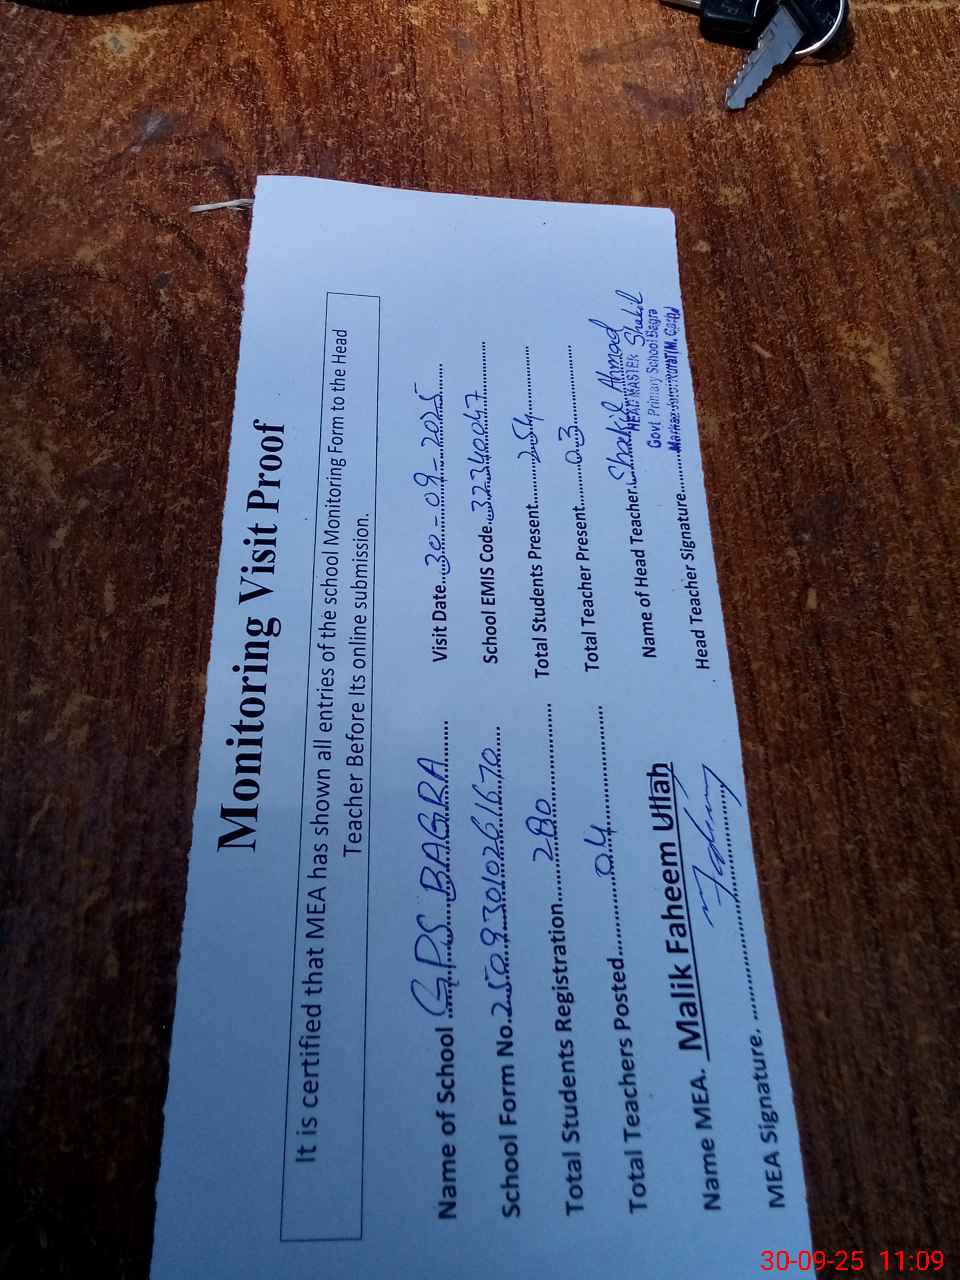 Monitoring Visit Proof
It is certified that MEA has shown all entries of the school Monitoring Form to the Head
Teacher Before Its online submission.
Name of School G.P.S BAGRA Visit Date 30-09-2025
School Form No. 25093010261670 School EMIS Code 32340047
Total Students Registration 280 Total Students Present 254
Total Teachers Posted 04 Total Teacher Present 03
Name MEA. Malik Faheem Ullah Name of Head Teacher Shakil Ahmad
MEA Signature. Head Teacher Signature Shakil
HEAD MASTER
Govt Primary School Bagra
30-09-25 11:09